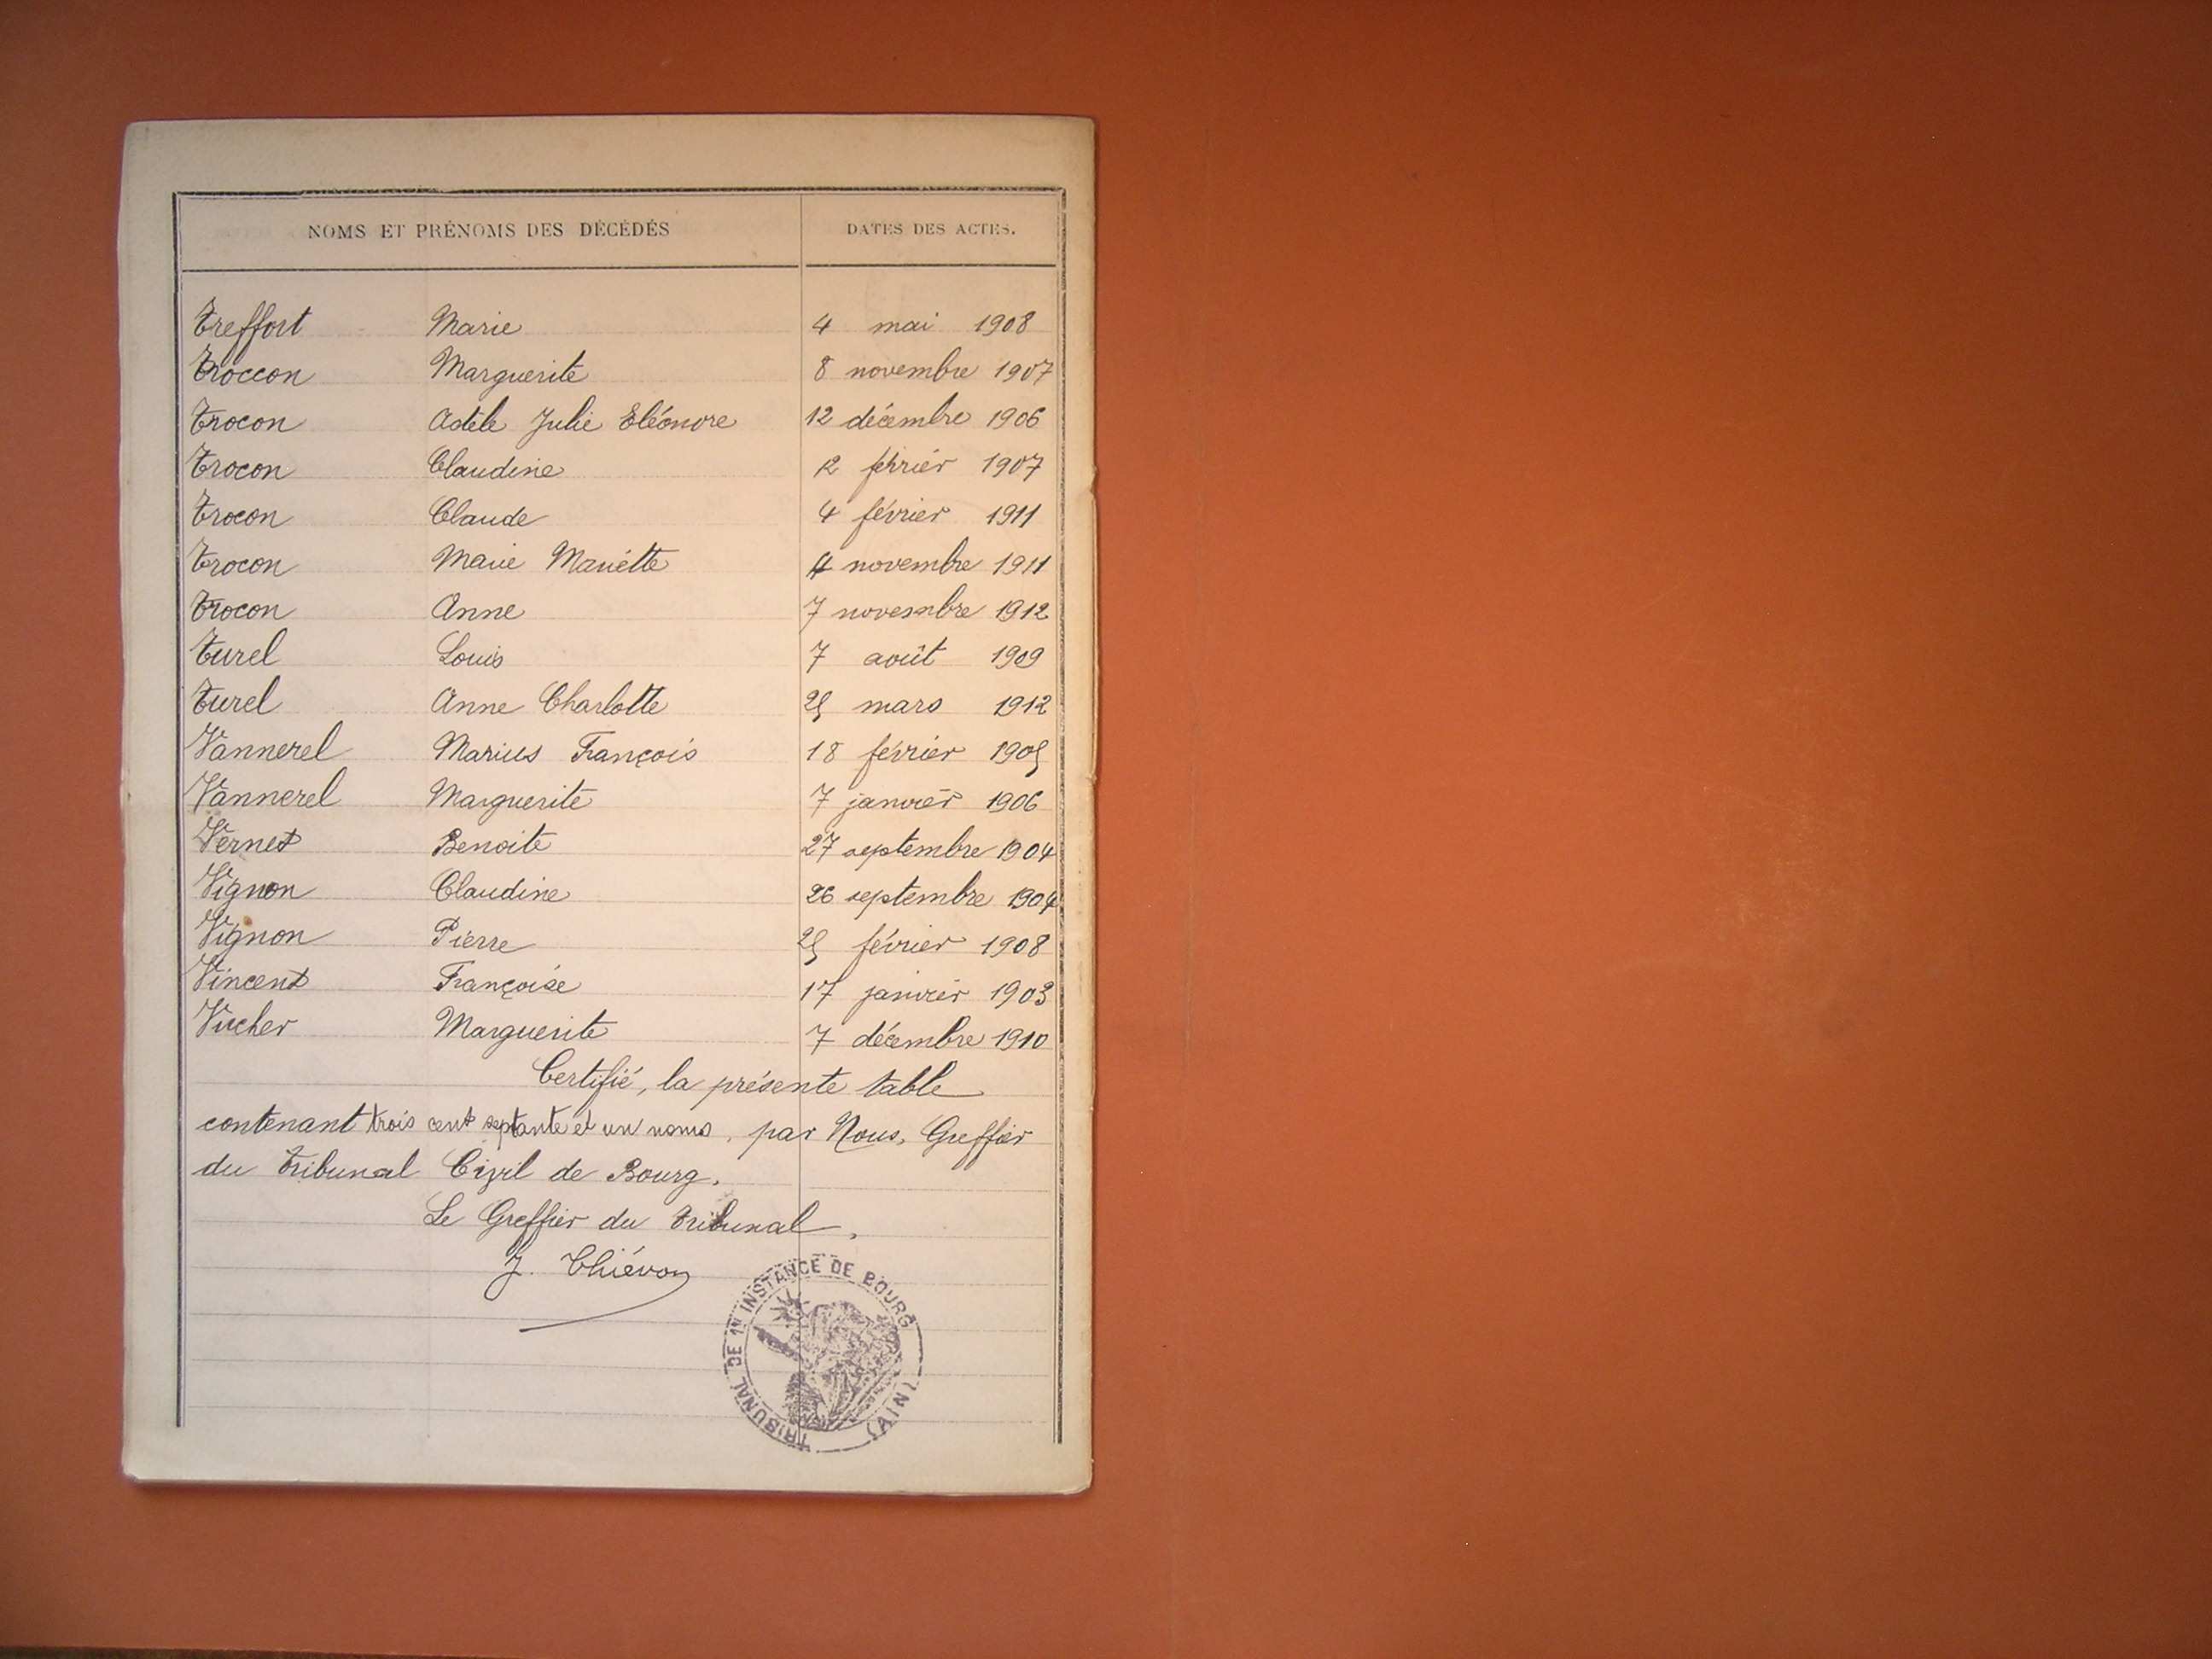 NOMS ET PRÉNOMS DES DÉCÉDÉS DATES DES ACTES.
Treffort Marie 4 mai 1908
Troccon Marguerite 8 novembre 1907
Trocon Adèle Julie Eléonore 12 décembre 1906
Trocon Claudine 2 février 1907
Trocon Claude 4 février 1911
Trocon Marie Mariette 4 novembre 1911
Trocon Anne 7 novembre 1912
Turel Louis 7 août 1909
Turel Anne Charlotte 25 mars 1912
Vannerel Marius François 18 février 1905
Vannerel Marguerite 7 janvier 1906
Vernet Benoite 27 septembre 1904
Vignon Claudine 26 septembre 1904
Vignon Pierre 25 février 1908
Vincent Françoise 17 janvier 1903
Vucher Marguerite 7 décembre 1910
Certifié, la présente table
contenant trois cent septante et un noms, par Nous, Greffier
du Tribunal Civil de Bourg.
Le Greffier du Tribunal,
J. Chiévon
TRIBUNAL DE 1re INSTANCE DE BOURG
(AIN)